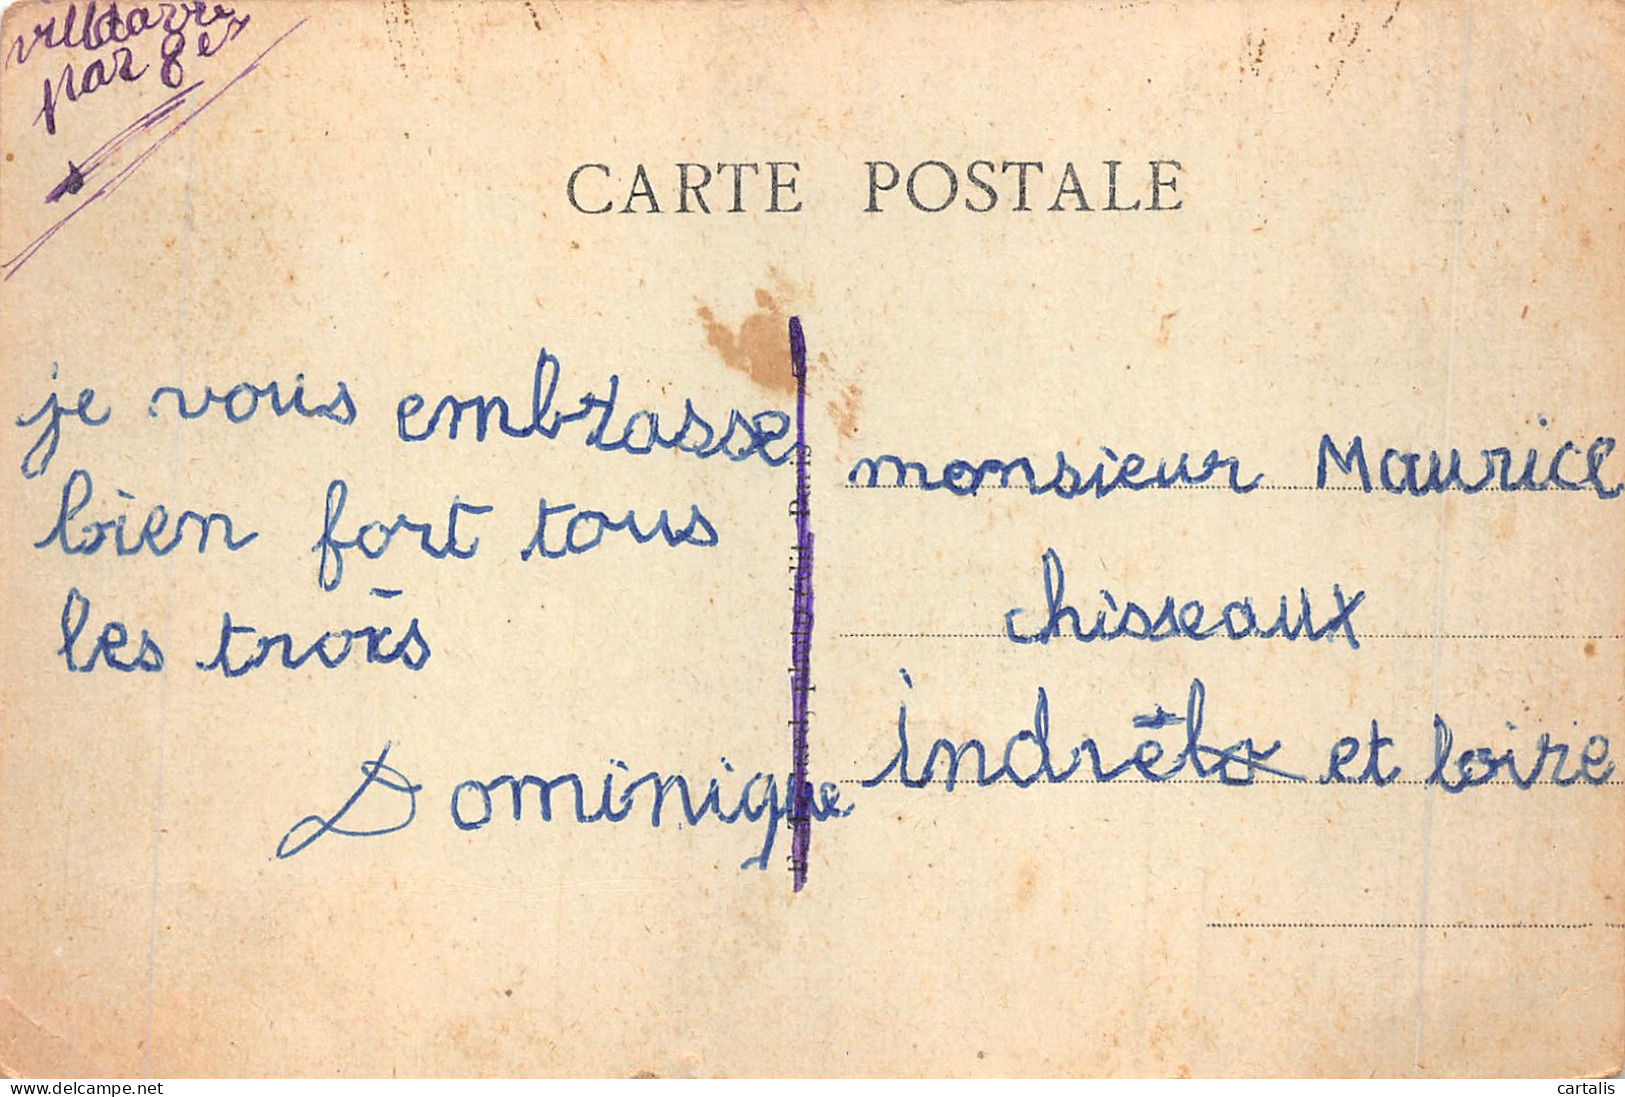 par
CARTE POSTALE
je vous embrasse
bien fort tous
les trois
Dominique
monsieur Maurice
chisseaux
indré et loire
édit. Paris
delcampe.net
cartalis